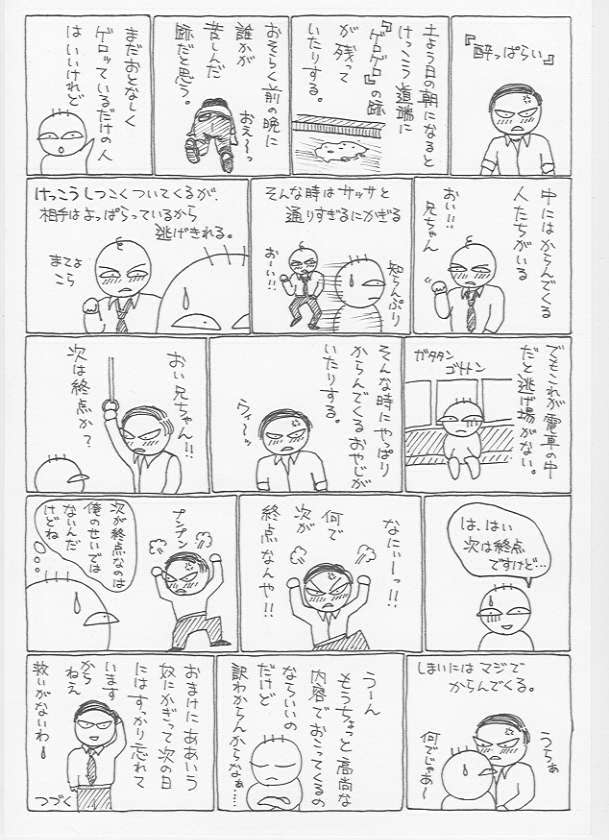 『酔っぱらい』
土よう日の朝になると
けっこう道端に
『ゲロゲロ』の跡
が残って
いたりする。
おそらく前の晩に
誰かが
苦しんだ
跡だと思う。
おえ〜っ
まだおとなしく
ゲロッているだけの人
はいいけれど
中にはからんでくる
人たちがいる
おい!!
兄ちゃん
そんな時はサッサと
通りすぎるにかぎる
知らんぷり
おーい!!
けっこうしつこくついてくるが、
相手はよっぱらっているから
逃げきれる。
まてよ
こら
でもこれが電車の中
だと逃げ場がない。
ガタタン
ゴトトン
そんな時にやっぱり
からんでくるおやじが
いたりする。
ウィ〜ッ
おい兄ちゃん!!
次は終点か?
は、はい
次は終点
ですけど…
なにぃーっ!!
何で
次が
終点なんや!!
プンプン
次が終点なのは
俺のせいでは
ないんだ
けどね
しまいにはマジで
からんでくる。
うらぁ
何でじゃあ〜
うーん
もうちょっと高尚な
内容でおこってくるの
ならいいの
だけど
訳わからんからなぁ……
おまけにああいう
奴にかぎって次の日
にはすっかり忘れて
います
からねえ
救いがないわ!
つづく